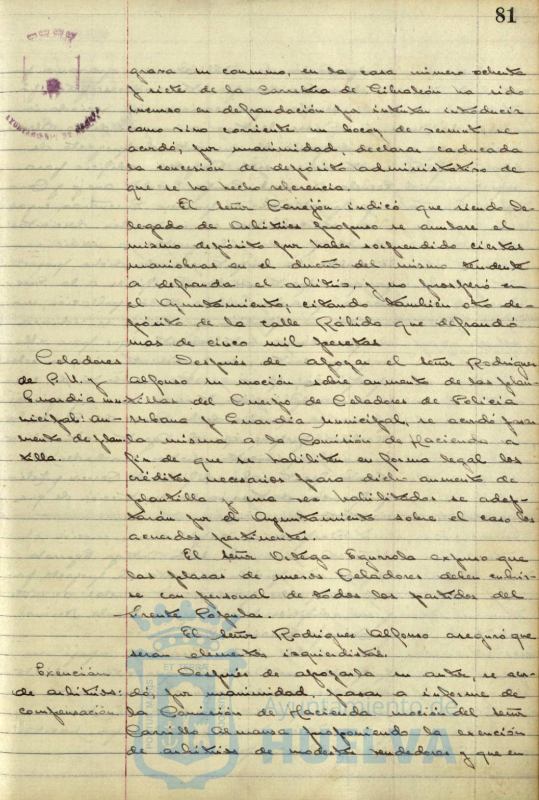 81
grava su consumo, en la casa número ochenta
y siete de la Carretera de Gibraleón ha sido
incurso en defraudación por intentar introducir
como vino corriente un bocoy de vermut se
acordó, por unanimidad, declarar caducada
la concesión de depósito administrativo de
que se ha hecho referencia.
El señor Carrejón indicó que siendo De-
legado de Arbitrios propuso se anulase el
mismo depósito por haber sorprendido ciertas
maniobras en el dueño del mismo tendente
a defraudar el arbitrio, y no prosperó en
el Ayuntamiento; citando también otro de-
pósito de la calle Rábida que defraudó
más de cinco mil pesetas
Celadores
de P. U. y
Guardia mu-
nicipal: au-
mento de plan-
tilla.
Después de apoyar el señor Rodríguez
Alfonso su moción sobre aumento de las plan-
tillas del Cuerpo de Celadores de Policía
Urbana y Guardia Municipal, se acordó pasar
la misma a la Comisión de Hacienda a
fin de que se habiliten en forma legal los
créditos necesarios para dicho aumento de
plantilla y una vez habilitados se adop-
tarán por el Ayuntamiento sobre el caso los
acuerdos pertinentes.
El señor Ortega expuso que
las plazas de nuevos Celadores deben cubrir-
se con personal de todos los partidos del
Frente Popular.
El señor Rodríguez Alfonso aseguró que
serán elementos izquierdistas.
Exención
de arbitrios:
compensación
Después de apoyarla su autor, se acor-
dó, por unanimidad, pasar a informe de
la Comisión de Hacienda moción del señor
Carrillo Almansa proponiendo la exención
de arbitrios de modestos vendedores y que en
Ayuntamiento de
HUELVA